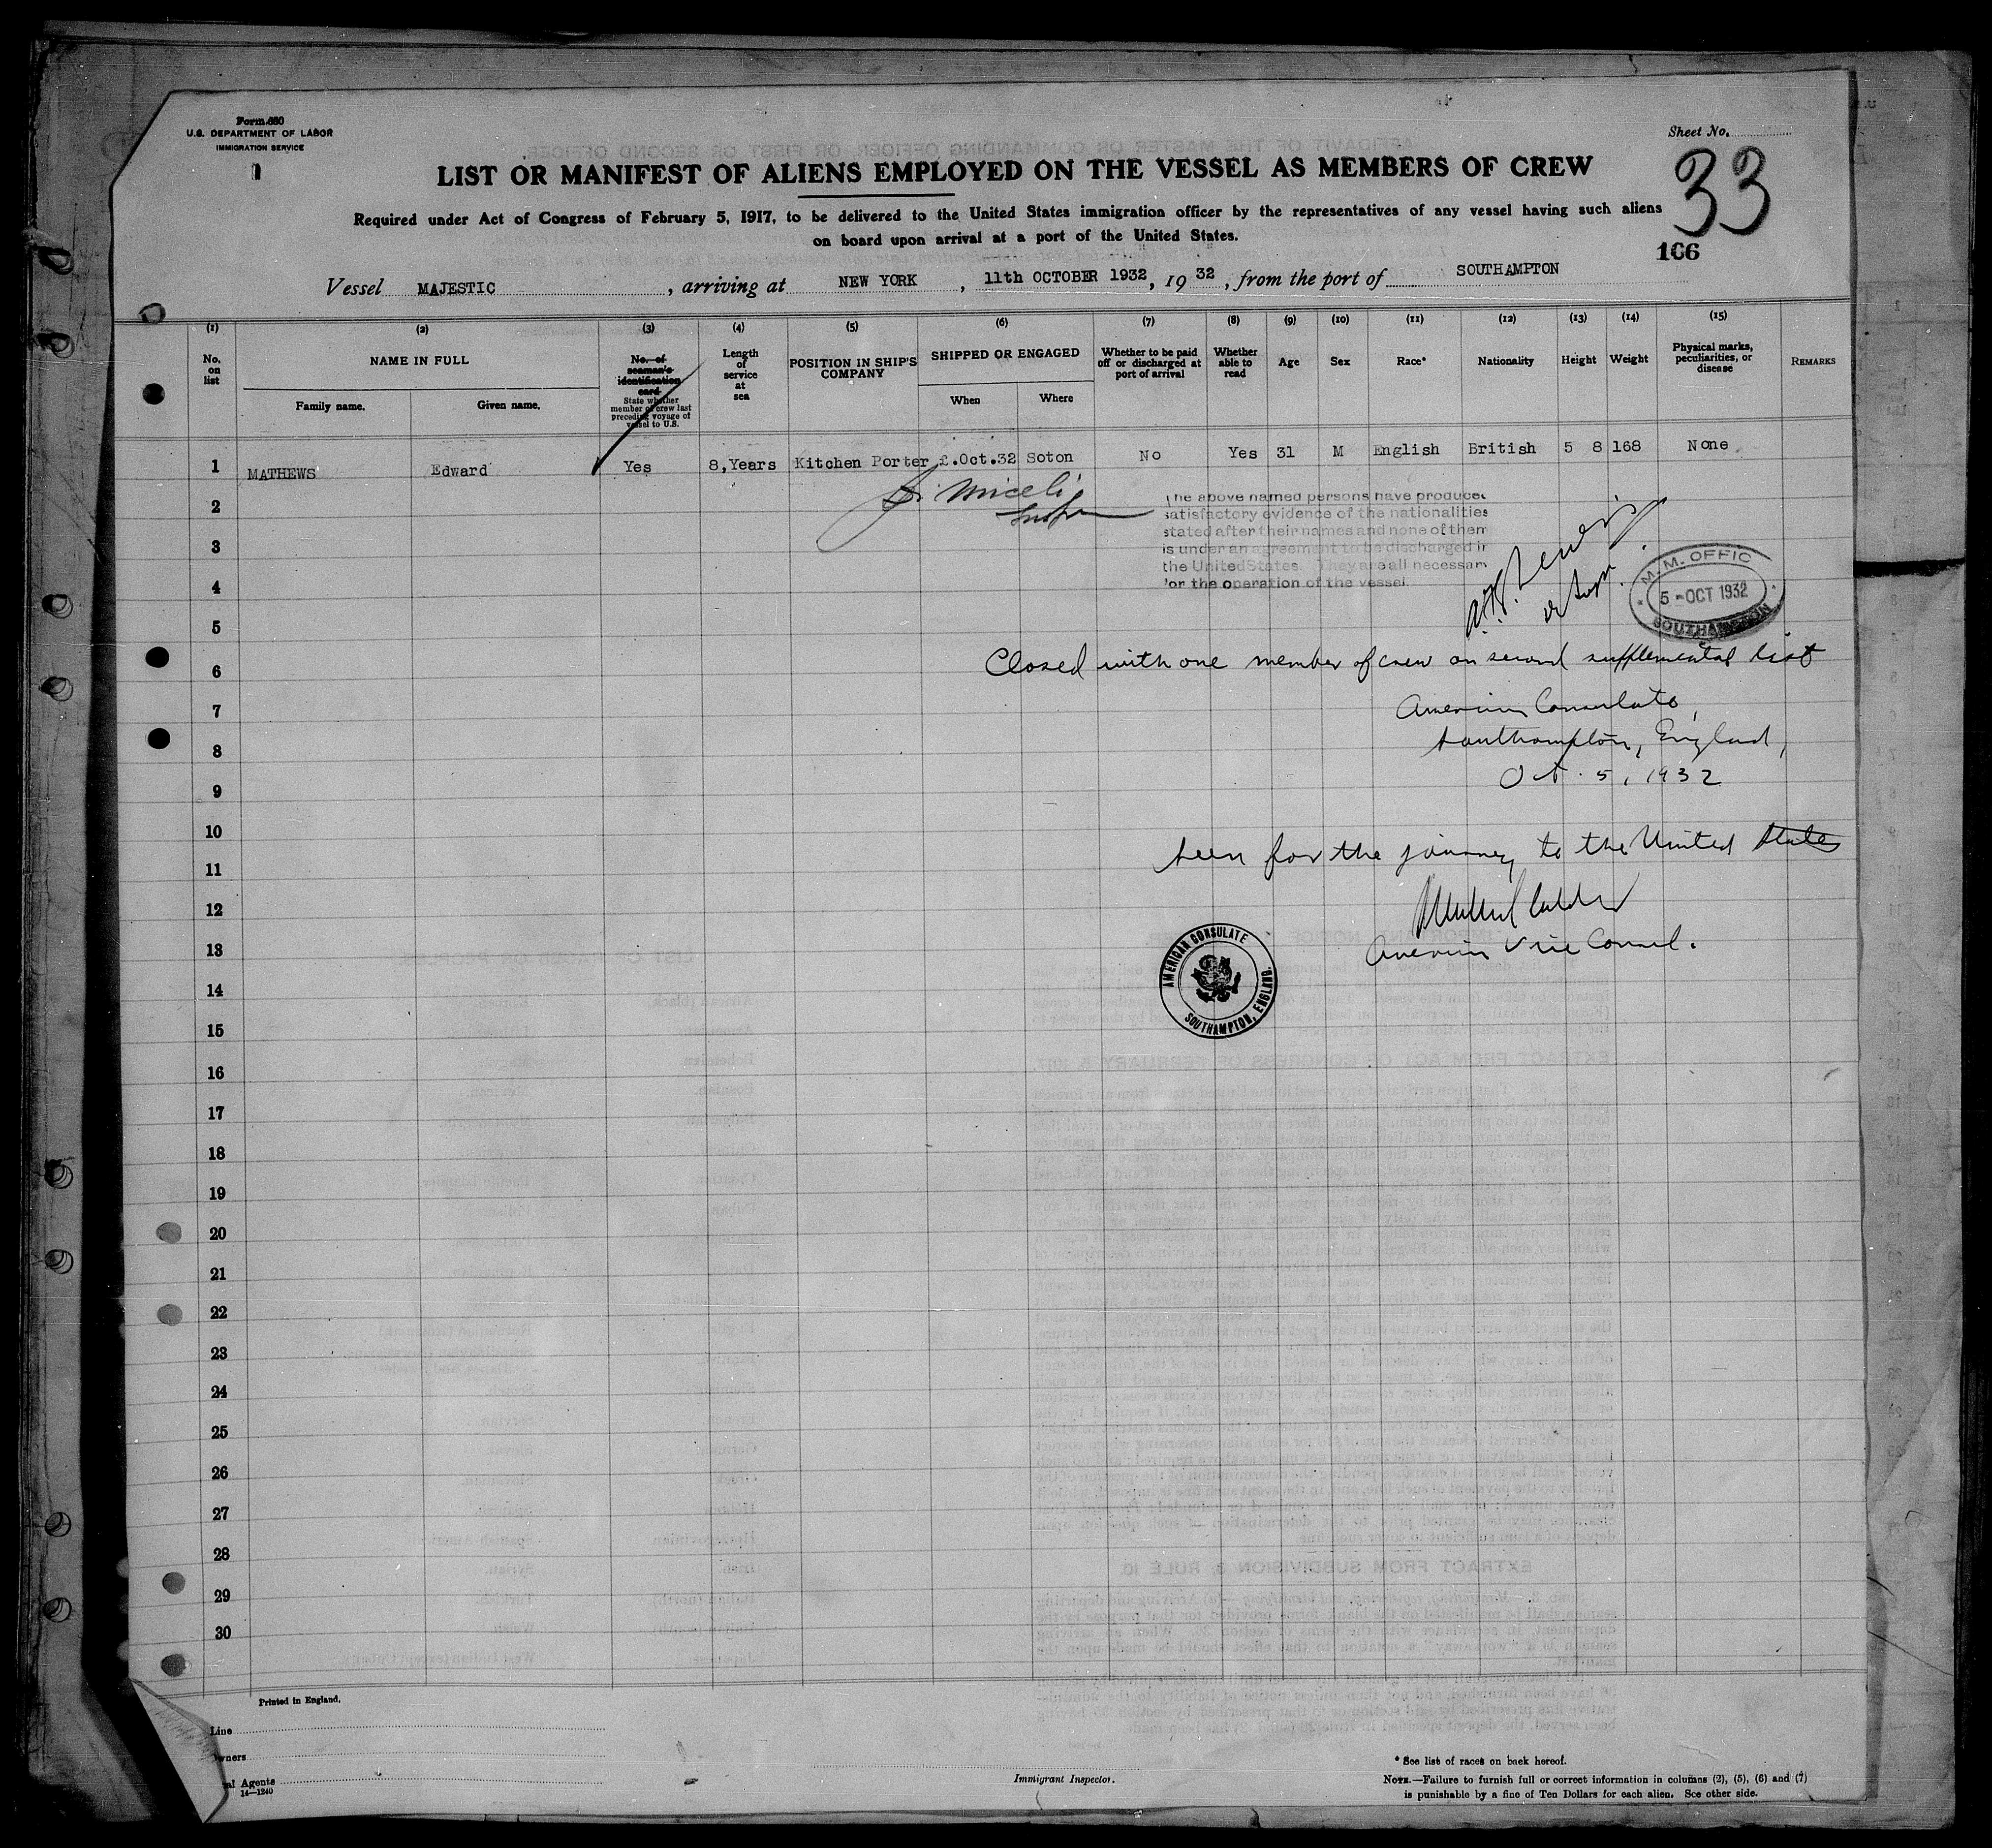 Form 680
U.S. DEPARTMENT OF LABOR
IMMIGRATION SERVICE
Sheet No.
33
166
LIST OR MANIFEST OF ALIENS EMPLOYED ON THE VESSEL AS MEMBERS OF CREW
Required under Act of Congress of February 5, 1917, to be delivered to the United States immigration officer by the representatives of any vessel having such aliens
on board upon arrival at a port of the United States.
Vessel MAJESTIC, arriving at NEW YORK, 11th OCTOBER 1932, 19 32, from the port of SOUTHAMPTON
(1) (2) (3) (4) (5) (6) (7) (8) (9) (10) (11) (12) (13) (14) (15)
No. on list
NAME IN FULL
Family name. Given name.
No. of seaman's identification card
State whether member of crew last preceding voyage of vessel to U.S.
Length of service at sea
POSITION IN SHIP'S COMPANY
SHIPPED OR ENGAGED
When Where
Whether to be paid off or discharged at port of arrival
Whether able to read
Age
Sex
Race*
Nationality
Height
Weight
Physical marks, peculiarities, or disease
REMARKS
1 MATHEWS Edward Yes 8,Years Kitchen Porter .Oct.32 Soton No Yes 31 M English British 5 8 168 None
2
The above named persons have produced
satisfactory evidence of the nationalities
3
stated after their names and none of them
is under an agreement to be discharged in
the United States. They are all necessary
4
for the operation of the vessel.
M.M. OFFIC
5 - OCT 1932
SOUTHAMPTON
5
6 Closed with one member of crew on second supplemental list
7 American Consulate,
8 Southampton, England,
9 Oct. 5, 1932
10 Seen for the journey to the United States
11
12
13 American Vice Consul.
AMERICAN CONSULATE
SOUTHAMPTON, ENGLAND.
14
15
16
17
18
19
20
21
22
23
24
25
26
27
28
29
30
Printed in England.
Line
Owners
al Agents
14—1240
Immigrant Inspector.
* See list of races on back hereof.
NOTE.—Failure to furnish full or correct information in columns (2), (5), (6) and (7)
is punishable by a fine of Ten Dollars for each alien. See other side.